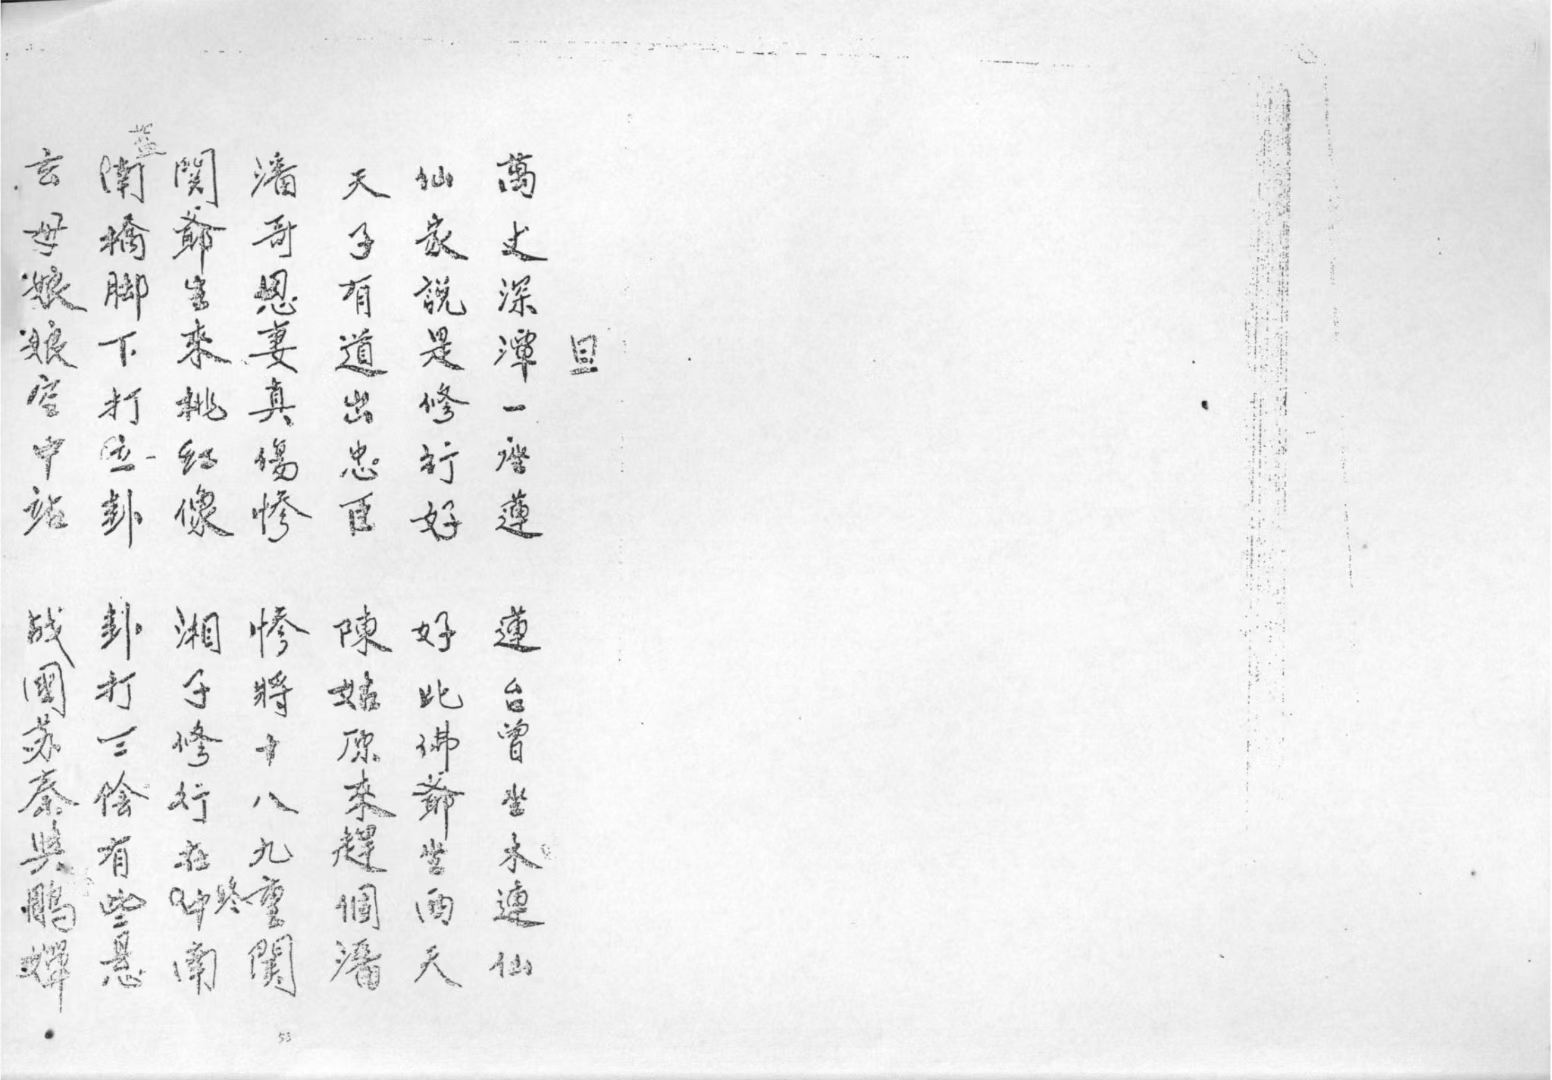 旦
萬丈深潭一座蓮 蓮台曾坐水連仙
仙家說是修行好 好比佛爺坐西天
天子有道出忠臣 陳姑原來趕個潘
潘哥恩妻真傷慘 慘將十八九重關
関爺生來桃紅像 湘子修行在終南
藍橋脚下打卦 卦打三陰有些懸
玄母娘娘空中站 战國苏秦與鵰嬋
53